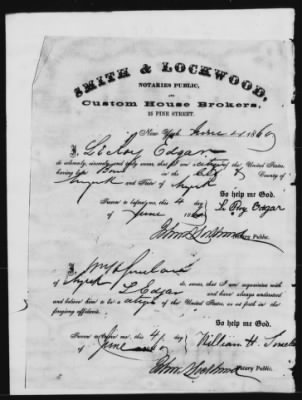 SMITH & LOCKWOOD,
NOTARIES PUBLIC,
AND
Custom House Brokers,
35 PINE STREET.
New York June 4 1860
I, LeRoy Edgar
do solemnly, sincerely and truly swear, that I am a citizen of the United States,
having been Born in the City of
New York and State of New York
So help me God.
Sworn to before me, this 4 day
of June 1860
Le Roy Edgar
Notary Public.
I,
of New York do swear, that I am acquainted with
L Edgar and have always understood
and believed him to be a citizen of the United States, as set forth in the
foregoing affidavit.
So help me God
Sworn to before me, this 4 day
of June
William H.
Notary Public.